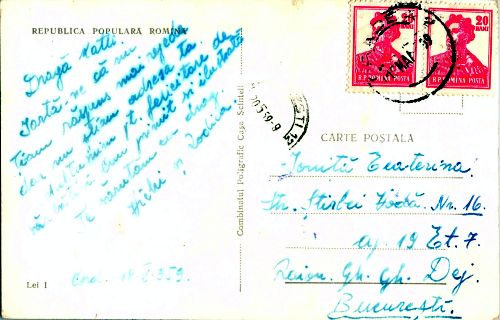 REPUBLICA POPULARA ROMÎNA
Dragă Katti
Iartă-ne că nu
ți-am răspuns mai repede
dar nu știam adresa ta.
Mulțumim pt. felicitare de
am primit și ilustrata
Te sărutăm cu drag
Lei 1
Combinatul Poligrafic Casa Scînteii
20 BANI
R.P.ROMINA POSTA
20 BANI
R.P.ROMINA POSTA
CARTE POȘTALA
Ioniță Ecaterina
Str. Știrbei Vodă Nr. 16
ap. 19 Et. 7.
Raion. Gh. Gh. Dej.
București.